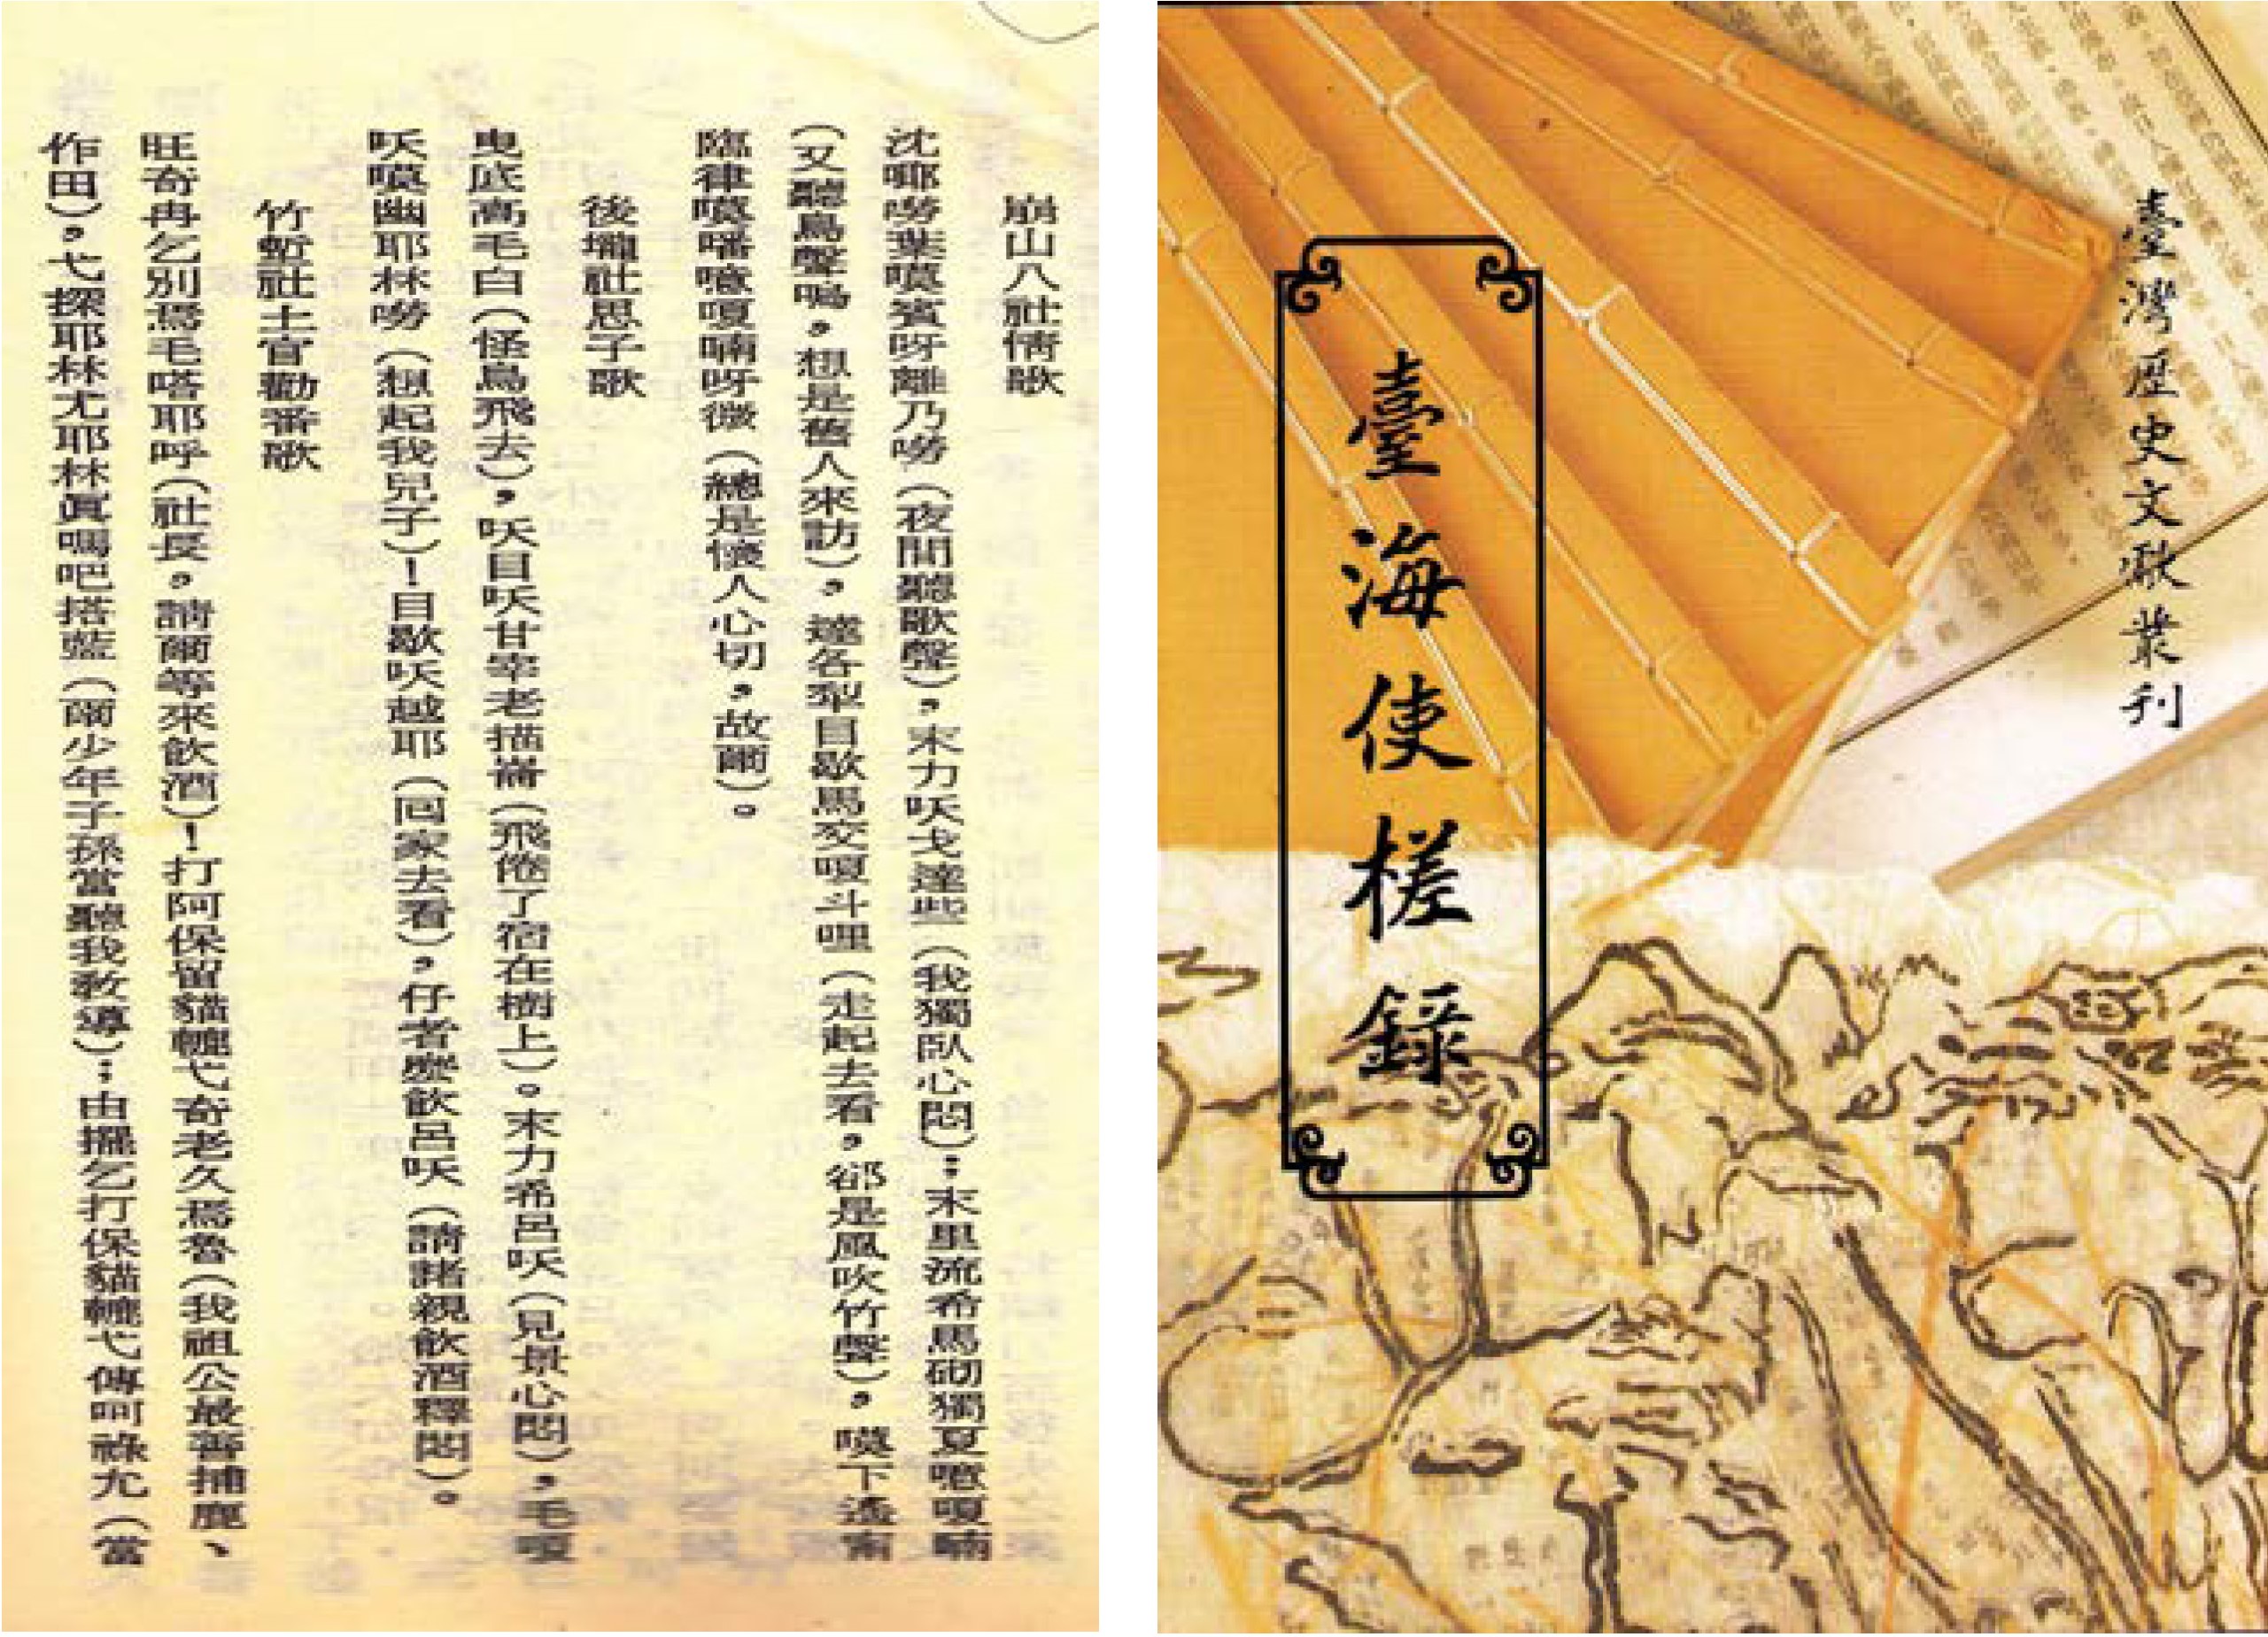 崩山八社情歌
沈耶嘮葉嘆賓呀離乃嘮（夜間聽歌聲），末力吠戈達些（我獨臥心悶）；末里流希馬砌獨夏噫嗄喃
（又聽鳥聲鳴，想是舊人來訪），達各犁目歇馬交嗄斗哩（走起去看，郤是風吹竹聲），嘆下遙甯
臨律嘆嘈噫嗄喃呀微（總是懷人心切，故爾）。
後壠社思子歌
曳底高毛白（怪鳥飛去），吠目吠甘宰老描崙（飛倦了宿在樹上）。末力希呂吠（見景心悶），毛嗄
吠嘆幽耶林嘮（想起我兒子）！目歇吠越耶（回家去看），仔者麼飲呂吠（請諸親飲酒釋悶）。
竹塹社土官勸番歌
旺奇冉乞別焉毛嗒耶呼（社長，請爾等來飲酒）！打阿保留貓轆弋奇老久焉魯（我祖公最善捕鹿、
作田），弋探耶林尤耶林眞嗎吧搭藍（爾少年子孫當聽我教導）；由擺乞打保貓轆弋傳呵祿尤（當
臺灣歷史文獻叢刊
臺海使槎錄